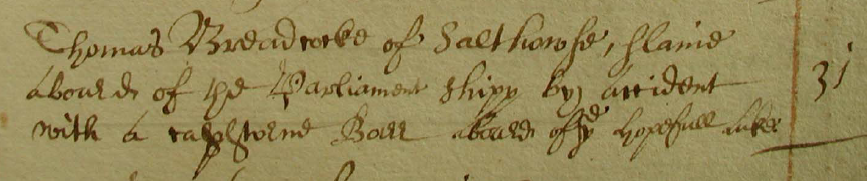 Thomas Breadcocke of Salthowse, slaine
aboarde of the Parliament shipp by accident 31
with a capstorne Barr aboarde of ye Hopefull